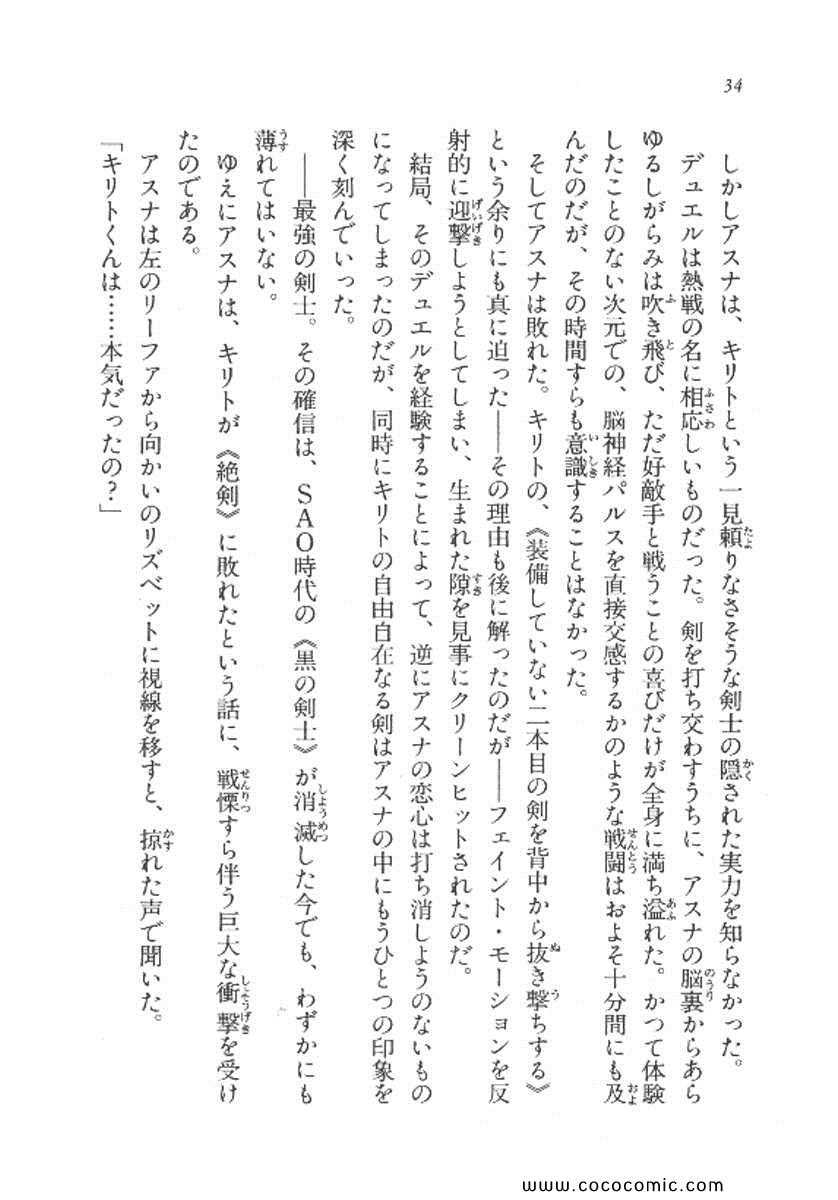 34
しかしアスナは、キリトという一見頼りなさそうな剣士の隠された実力を知らなかった。
デュエルは熱戦の名に相応しいものだった。剣を打ち交わすうちに、アスナの脳裏からあら
ゆるしがらみは吹き飛び、ただ好敵手と戦うことの喜びだけが全身に満ち溢れた。かつて体験
したことのない次元での、脳神経パルスを直接交感するかのような戦闘はおよそ十分間にも及
んだのだが、その時間すらも意識することはなかった。
そしてアスナは敗れた。キリトの、《装備していない二本目の剣を背中から抜き撃ちする》
という余りにも真に迫った――その理由も後に解ったのだが――フェイント・モーションを反
射的に迎撃しようとしてしまい、生まれた隙を見事にクリーンヒットされたのだ。
結局、そのデュエルを経験することによって、逆にアスナの恋心は打ち消しようのないもの
になってしまったのだが、同時にキリトの自由自在なる剣はアスナの中にもうひとつの印象を
深く刻んでいった。
――最強の剣士。その確信は、SAO時代の《黒の剣士》が消滅した今でも、わずかにも
薄れてはいない。
ゆえにアスナは、キリトが《絶剣》に敗れたという話に、戦慄すら伴う巨大な衝撃を受け
たのである。
アスナは左のリーファから向かいのリズベットに視線を移すと、掠れた声で聞いた。
「キリトくんは……本気だったの？」
www.cococomic.com